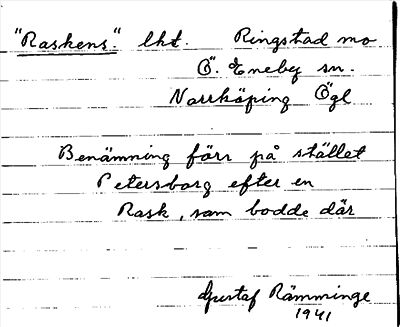 "Raskens". lht. Ringstad mo
Ö. Eneby sn.
Norrköping Ögl
Benämning förr på stället
Petersborg efter en
Rask, som bodde där
Gustaf Rämminge
1941